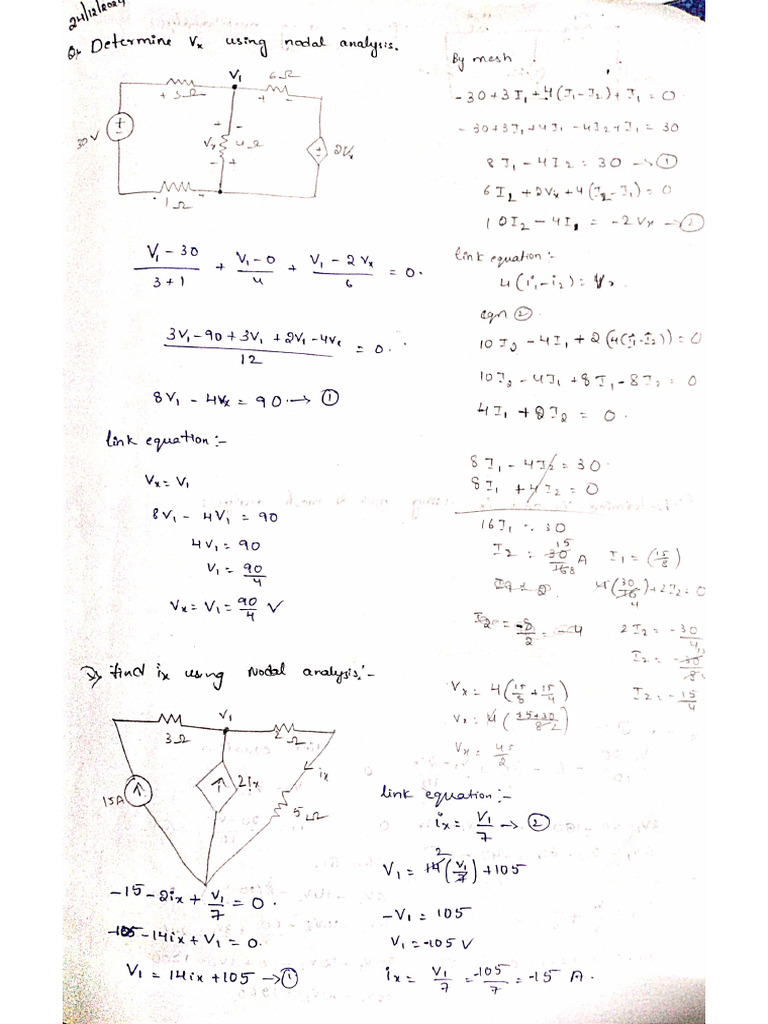 24/12/2024
Q, Determine Vx using nodal analysis.
V1
3Ω
6Ω
+ -
+ -
30V
+
-
+ -
Vx
4Ω
- +
2Vx
1Ω
(V1 - 30)/(3+1) + (V1 - 0)/4 + (V1 - 2Vx)/6 = 0.
(3V1 - 90 + 3V1 + 2V1 - 4Vx)/12 = 0.
8V1 - 4Vx = 90 → ①
link equation :-
Vx = V1
8V1 - 4V1 = 90
4V1 = 90
V1 = 90/4
Vx = V1 = 90/4 V
By mesh
-30 + 3I1 + 4(I1 - I2) + I1 = 0
-30 + 3I1 + 4I1 - 4I2 + I1 = 30
8I1 - 4I2 = 30 → ①
6I2 + 2Vx + 4(I2 - I1) = 0
10I2 - 4I1 = -2Vx → ②
link equation :-
4(i1 - i2) = Vx
eqn ②
10I2 - 4I1 + 2(4(I1 - I2)) = 0
10I2 - 4I1 + 8I1 - 8I2 = 0
4I1 + 2I2 = 0.
8I1 - 4I2 = 30
8I1 + 4I2 = 0
16I1 = 30
I2 = 30/16 15/8 A I1 = (15/8)
4(30/16) + 2I2 = 0
I2 = -8/2 = -4
2I2 = -30/4
I2 = -30/8
I2 = -15/4
Vx = 4(15/8 + 15/4)
Vx = 4((15+30)/8)
Vx = 45/2
Q, find ix using Nodal analysis:-
V1
3Ω
2Ω
15A
2ix
ix
5Ω
-15 - 2ix + V1/7 = 0.
-105 - 14ix + V1 = 0.
V1 = 14ix + 105 → ①
link equation :-
ix = V1/7 → ②
V1 = 14(V1/7) + 105
2
-V1 = 105
V1 = -105 V
ix = V1/7 = -105/7 = -15 A.